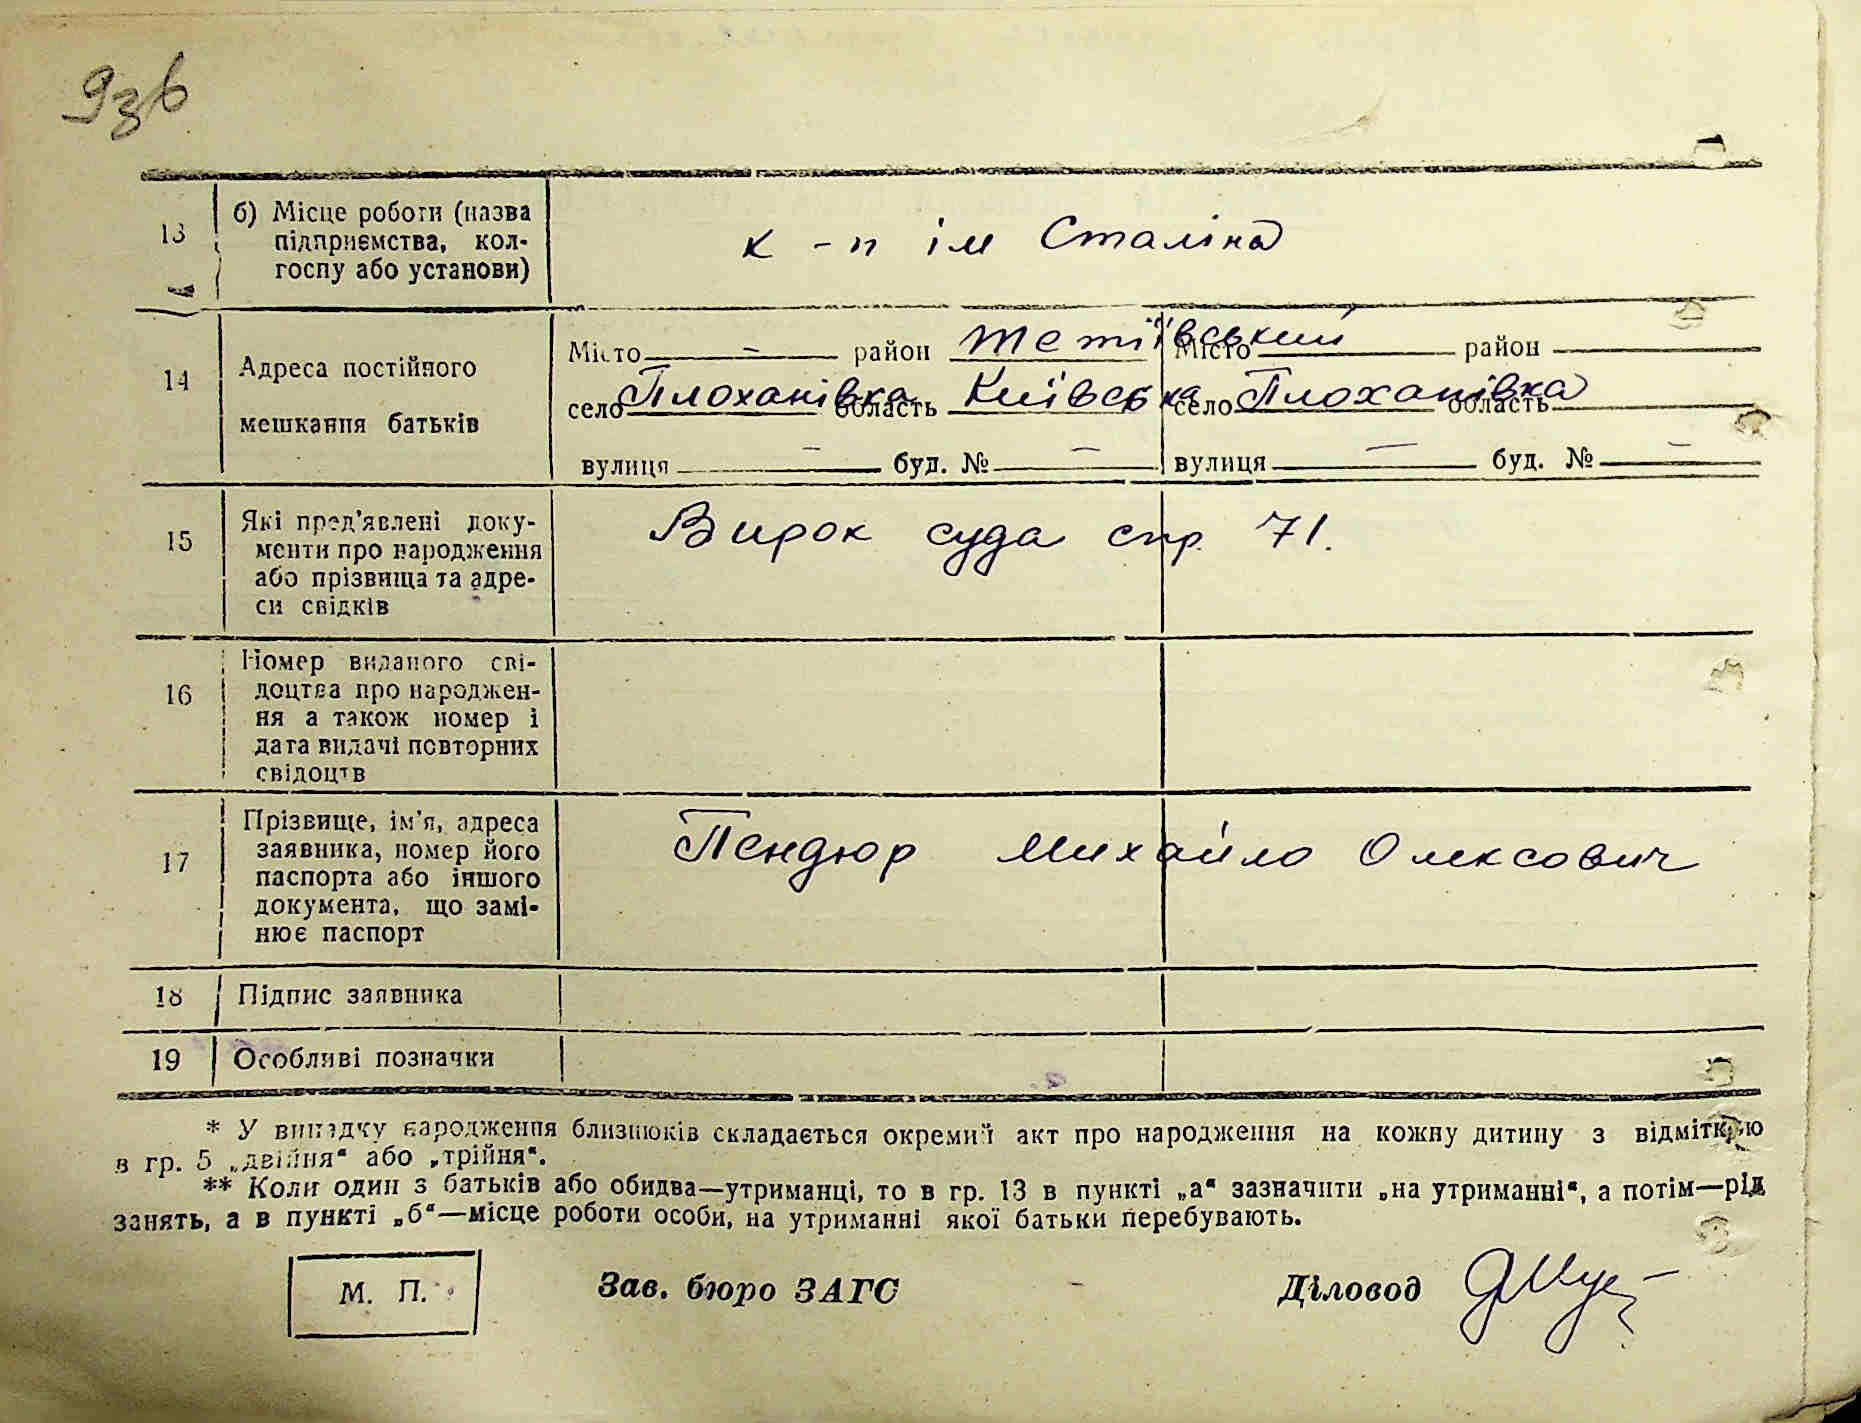 93б
13 б) Місце роботи (назва підприємства, колгоспу або установи) к-п ім Сталіна
14 Адреса постійного мешкання батьків
Місто – район Тетіївський Місто район
село Плоханівка область Київська село Плоханівка область
вулиця – буд. № – вулиця – буд. № –
15 Які пред'явлені доку-
менти про народження
або прізвища та адре-
си свідків
Вирок суда спр. 71.
16 Номер виданого сві-
доцтва про народжен-
ня а також номер і
дата видачі повторних
свідоцтв
17 Прізвище, ім'я, адреса
заявника, номер його
паспорта або іншого
документа, що замі-
нює паспорт
Пендюр Михайло Олексович
18 Підпис заявника
19 Особливі позначки
* У випадку народження близнюків складається окремий акт про народження на кожну дитину з відміткою
в гр. 5 „двійня“ або „трійня“.
** Коли один з батьків або обидва—утриманці, то в гр. 13 в пункті „а“ зазначити „на утриманні“, а потім—рід
занять, а в пункті „б“—місце роботи особи, на утриманні якої батьки перебувають.
М. П. Зав. бюро ЗАГС Діловод